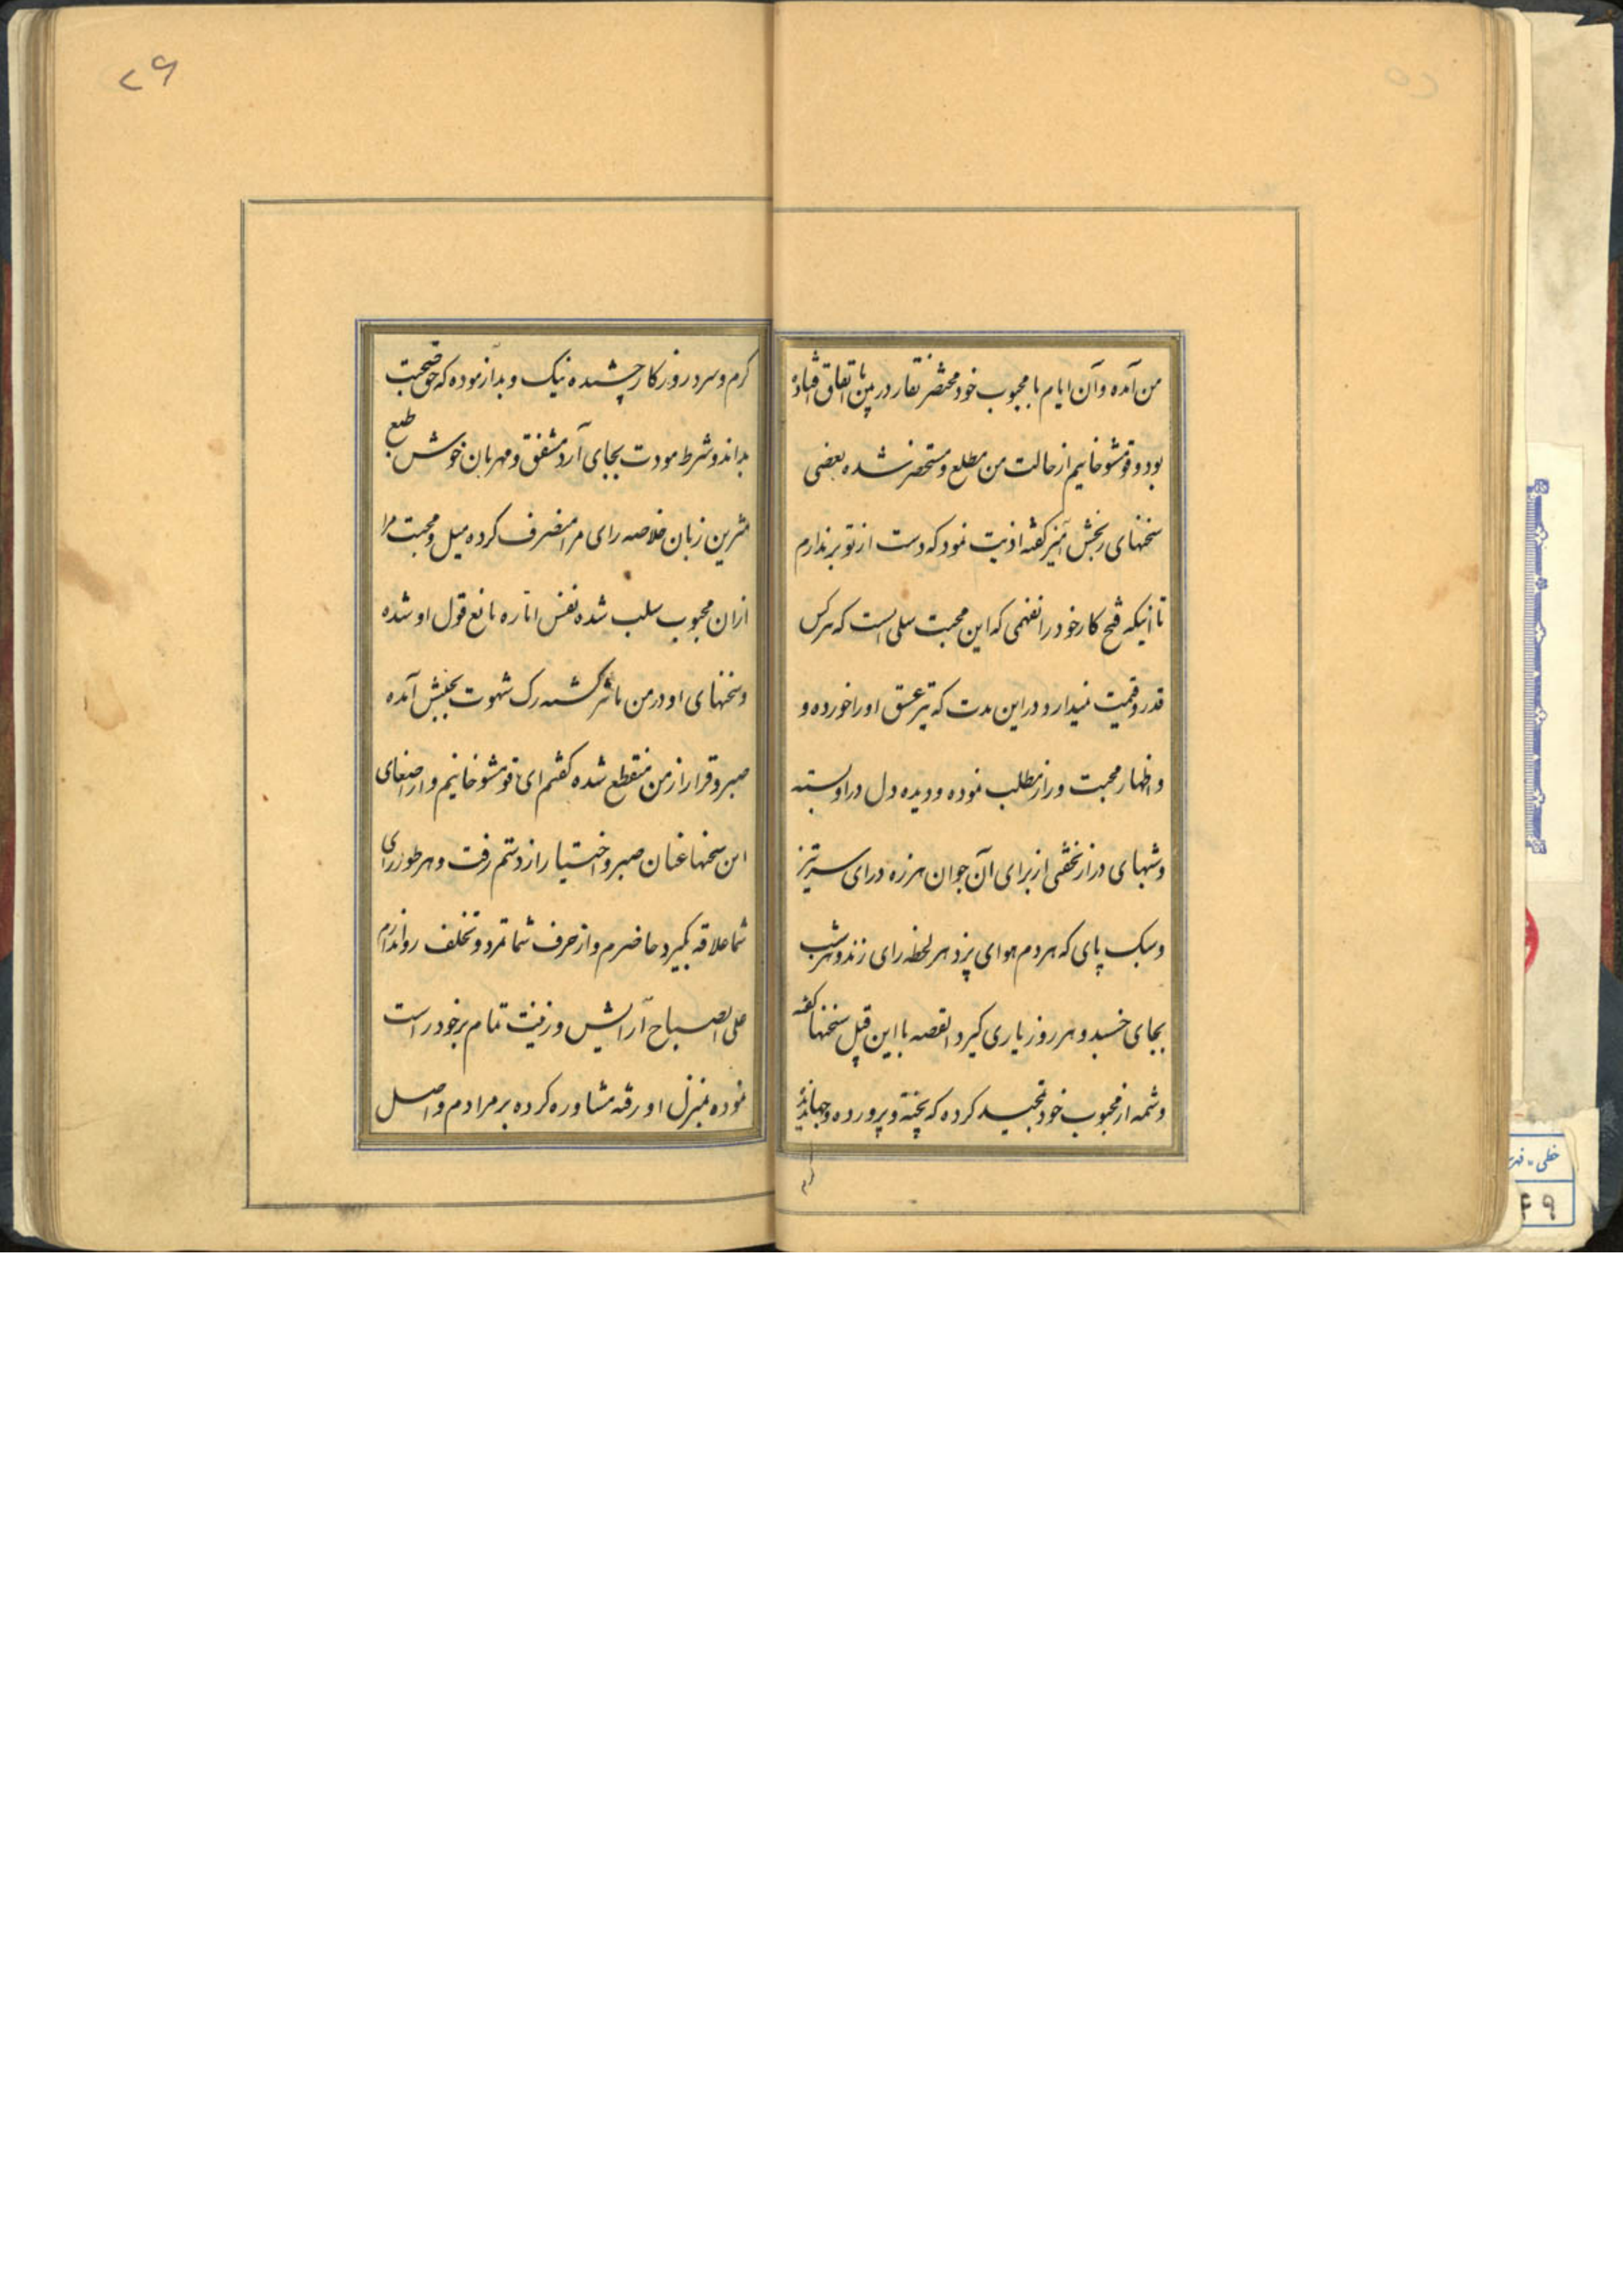 من آمده و آن ایام با محبوب خود مختصر نقار در بین ما اتفاق افتاده
بود و قومشو خانیم از حالت من مطلع و مستحضر شده بعضی
سخنهای رنجش آمیز گفته اذیت نمود که دست از تو برندارم
تا اینکه قبح کار خود را نفهمی که این محبت سلی است که هر کس
قدر و قیمت نمیدارد و در این مدت که تیر عشق او را خورده و
و اظهار محبت و راز مطلب نموده و دیده دل در او بسته
و شبهای دراز نخفتی از برای آن جوان هرزه درای سرتیز
و سبک پای که هر دم هوای پزد هر لحظه رای زند و هر شب
بجای خسبد و هر روز یاری گیرد القصه با این قبیل سخنها گفته
و شمه از محبوب خود تمجید کرده که پخته و پرورده و جهاندیده
گرم
۲۶
گرم و سرد روزگار چشیده نیک و بد آزموده که حق صحبت
بداند و شرط مودت بجای آرد مشفق و مهربان خوش طبع
شیرین زبان خلاصه رای مرا منصرف کرده میل و محبت مرا
ازان محبوب سلب شده نفس اماره مانع قول او شده
و سخنهای او در من ماثر گشته رک شهوت بجنبش آمده
صبر و قرار از من منقطع شده گفتم ای قومشو خانیم و از اصغای
این سخنها عنان صبر و اختیار از دستم رفت و هر طور رای
شما علاقه بگیرد حاضرم و از حرف شما تمرد و تخلف روا ندارم
علی الصباح آرایش و زینت تمام بر خود راست
نموده بمنزل او رفته مشاوره کرده بر مرادم واصل
خطی - فهر
۴۹